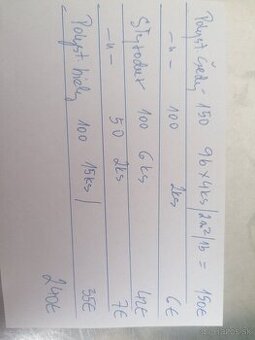 Polyst. šedý - 150 9b x 4ks /2m²/1b = 150€
-n- 100 2ks 6€
Stytodur 100 6ks 42€
-n- 50 2ks 7€
Polyst biely 100 15ks/ 35€
240€